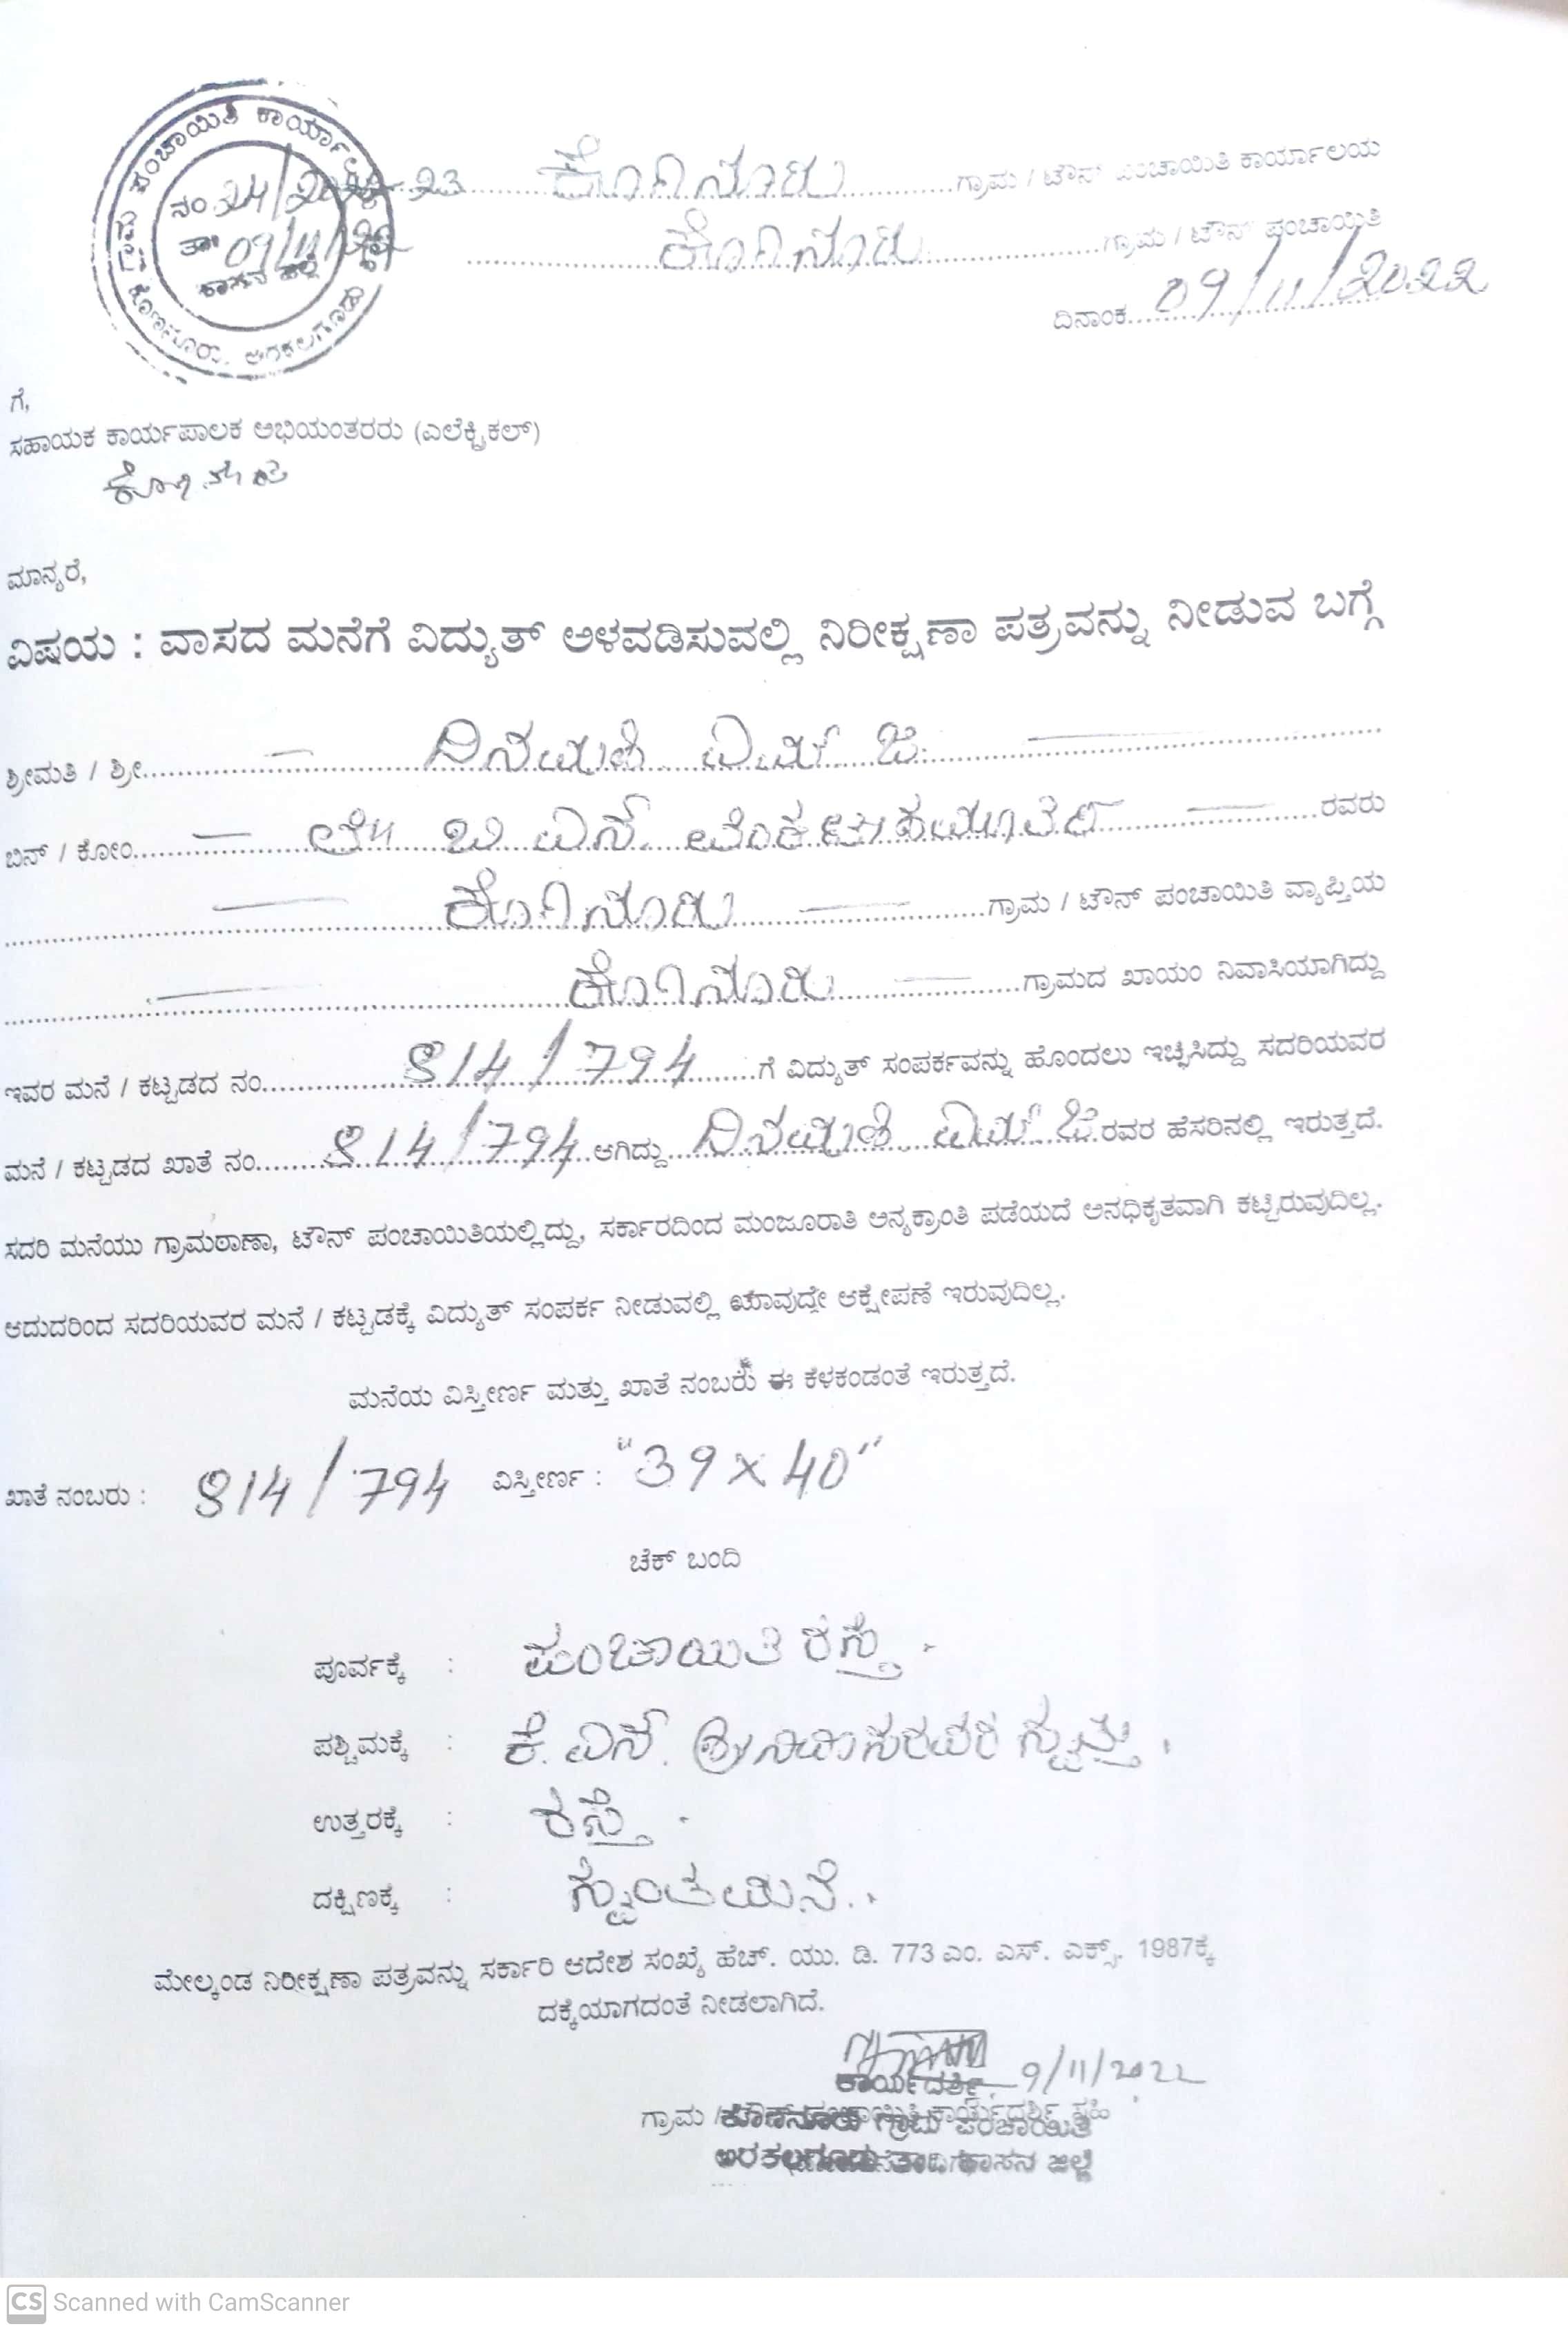 ಗ್ರಾಮ ಪಂಚಾಯಿತಿ ಕಾರ್ಯಾಲಯ
ನಂ 24/2022-23
ತಾ॥ 09/11/22
ಹಾಸನ ಜಿಲ್ಲೆ
ಕೊಣನೂರು. ಅರಕಲಗೂಡು
ಕೊಣನೂರು ಗ್ರಾಮ / ಟೌನ್ ಪಂಚಾಯಿತಿ ಕಾರ್ಯಾಲಯ
ಕೊಣನೂರು ಗ್ರಾಮ / ಟೌನ್ ಪಂಚಾಯಿತಿ
ದಿನಾಂಕ 09/11/2022
ಗೆ,
ಸಹಾಯಕ ಕಾರ್ಯಪಾಲಕ ಅಭಿಯಂತರರು (ಎಲೆಕ್ಟ್ರಿಕಲ್)
ಕೊಣನೂರು
ಮಾನ್ಯರೆ,
ವಿಷಯ : ವಾಸದ ಮನೆಗೆ ವಿದ್ಯುತ್ ಅಳವಡಿಸುವಲ್ಲಿ ನಿರೀಕ್ಷಣಾ ಪತ್ರವನ್ನು ನೀಡುವ ಬಗ್ಗೆ
ಶ್ರೀಮತಿ / ಶ್ರೀ ದಿನಮಣಿ ಎಮ್ ಜಿ.
ಬಿನ್ / ಕೋಂ ಲೇ॥ ಬಿ ಎನ್. ವೆಂಕಟಾಚಲಮೂರ್ತಿ ರವರು
ಕೊಣನೂರು ಗ್ರಾಮ / ಟೌನ್ ಪಂಚಾಯಿತಿ ವ್ಯಾಪ್ತಿಯ
ಕೊಣನೂರು ಗ್ರಾಮದ ಖಾಯಂ ನಿವಾಸಿಯಾಗಿದ್ದು
ಇವರ ಮನೆ / ಕಟ್ಟಡದ ನಂ 814/794 ಗೆ ವಿದ್ಯುತ್ ಸಂಪರ್ಕವನ್ನು ಹೊಂದಲು ಇಚ್ಛಿಸಿದ್ದು ಸದರಿಯವರ
ಮನೆ / ಕಟ್ಟಡದ ಖಾತೆ ನಂ 814/794 ಆಗಿದ್ದು ದಿನಮಣಿ ಎಮ್ ಜಿ ರವರ ಹೆಸರಿನಲ್ಲಿ ಇರುತ್ತದೆ.
ಸದರಿ ಮನೆಯು ಗ್ರಾಮಠಾಣಾ, ಟೌನ್ ಪಂಚಾಯಿತಿಯಲ್ಲಿದ್ದು, ಸರ್ಕಾರದಿಂದ ಮಂಜೂರಾತಿ ಅನ್ಯಕ್ರಾಂತಿ ಪಡೆಯದೆ ಅನಧಿಕೃತವಾಗಿ ಕಟ್ಟಿರುವುದಿಲ್ಲ.
ಆದುದರಿಂದ ಸದರಿಯವರ ಮನೆ / ಕಟ್ಟಡಕ್ಕೆ ವಿದ್ಯುತ್ ಸಂಪರ್ಕ ನೀಡುವಲ್ಲಿ ಯಾವುದೇ ಆಕ್ಷೇಪಣೆ ಇರುವುದಿಲ್ಲ.
ಮನೆಯ ವಿಸ್ತೀರ್ಣ ಮತ್ತು ಖಾತೆ ನಂಬರು ಈ ಕೆಳಕಂಡಂತೆ ಇರುತ್ತದೆ.
ಖಾತೆ ನಂಬರು : 814/794 ವಿಸ್ತೀರ್ಣ : "39×40"
ಚೆಕ್ ಬಂದಿ
ಪೂರ್ವಕ್ಕೆ : ಪಂಚಾಯಿತಿ ರಸ್ತೆ.
ಪಶ್ಚಿಮಕ್ಕೆ : ಕೆ. ಎನ್. ಶ್ರೀನಿವಾಸರವರ ಸ್ವತ್ತು.
ಉತ್ತರಕ್ಕೆ : ರಸ್ತೆ.
ದಕ್ಷಿಣಕ್ಕ : ಸ್ವಂತಮನೆ.
ಮೇಲ್ಕಂಡ ನಿರೀಕ್ಷಣಾ ಪತ್ರವನ್ನು ಸರ್ಕಾರಿ ಆದೇಶ ಸಂಖ್ಯೆ ಹೆಚ್. ಯು. ಡಿ. 773 ಎಂ. ಎಸ್. ಎಕ್ಸ್. 1987ಕ್ಕೆ
ದಕ್ಕೆಯಾಗದಂತೆ ನೀಡಲಾಗಿದೆ.
ಕಾರ್ಯದರ್ಶಿ 9/11/2022
ಗ್ರಾಮ / ಟೌನ್ ಪಂಚಾಯಿತಿ ಕಾರ್ಯದರ್ಶಿ ಸಹಿ
ಕೊಣನೂರು ಗ್ರಾಮ ಪಂಚಾಯಿತಿ
ಅರಕಲಗೂಡು ತಾ॥ ಹಾಸನ ಜಿಲ್ಲೆ
CS Scanned with CamScanner